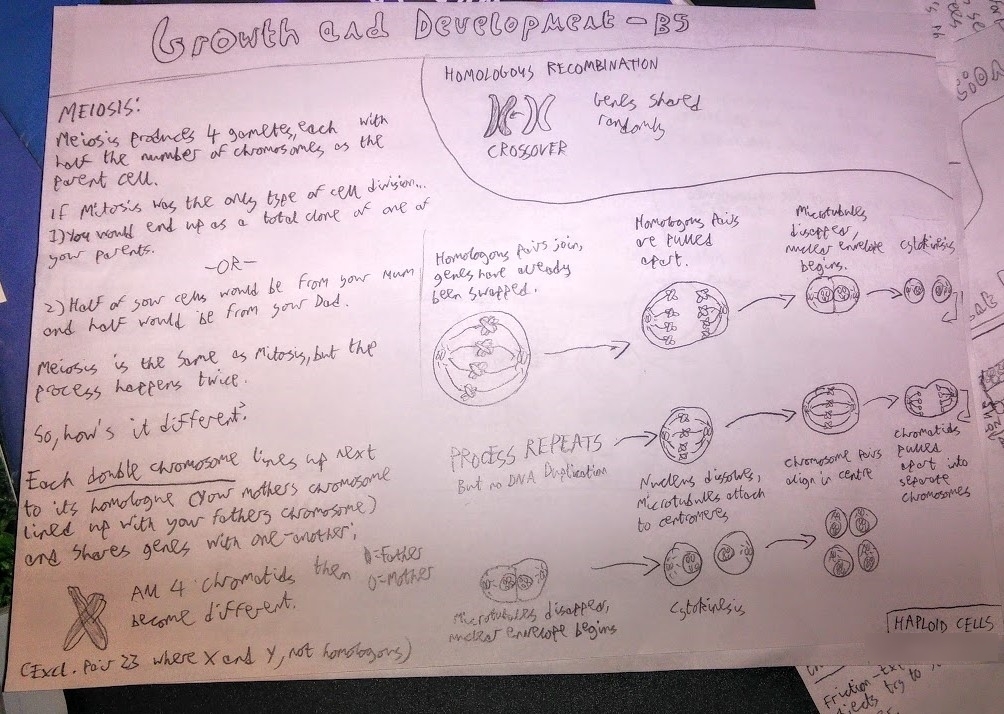 Growth and Development - B5
MEIOSIS:
Meiosis produces 4 gametes, each with
half the number of chromosomes as the
parent cell.
If Mitosis was the only type of cell division...
1) You would end up as a total clone of one of
your parents.
-OR-
2) Half of your cells would be from your Mum
and half would be from your Dad.
Meiosis is the same as Mitosis, but the
process happens twice.
So, how's it different?
Each double chromosome lines up next
to its homologue (your mothers chromosome
lined up with your fathers chromosome)
and shares genes with one-another;
All 4 chromatids then
become different.
=Father
=Mother
(Excl. Pair 23 where X and Y, not homologous)
HOMOLOGOUS RECOMBINATION
Genes shared
randomly
CROSSOVER
Homologous pairs join,
genes have already
been swapped.
Homologous Pairs
are pulled
apart.
Microtubules
disappear,
nuclear envelope
begins.
Cytokinesis
PROCESS REPEATS
But no DNA Duplication
Nucleus dissolves,
Microtubules attach
to centromeres
Chromosome Pairs
align in centre
Chromatids
pulled
apart into
separate
chromosomes
Microtubules disappear,
nuclear envelope begins
Cytokinesis
HAPLOID CELLS
Friction -
try to